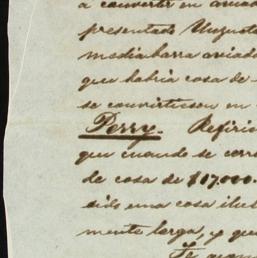 a convertir en avia
presentado Augusto
media barra aviado
que habia cosa de
se convirtieson en
Perry. Refirio
que cuando se corr
de cosa de $17.000.
sido una cosa ilul
mente larga, y que